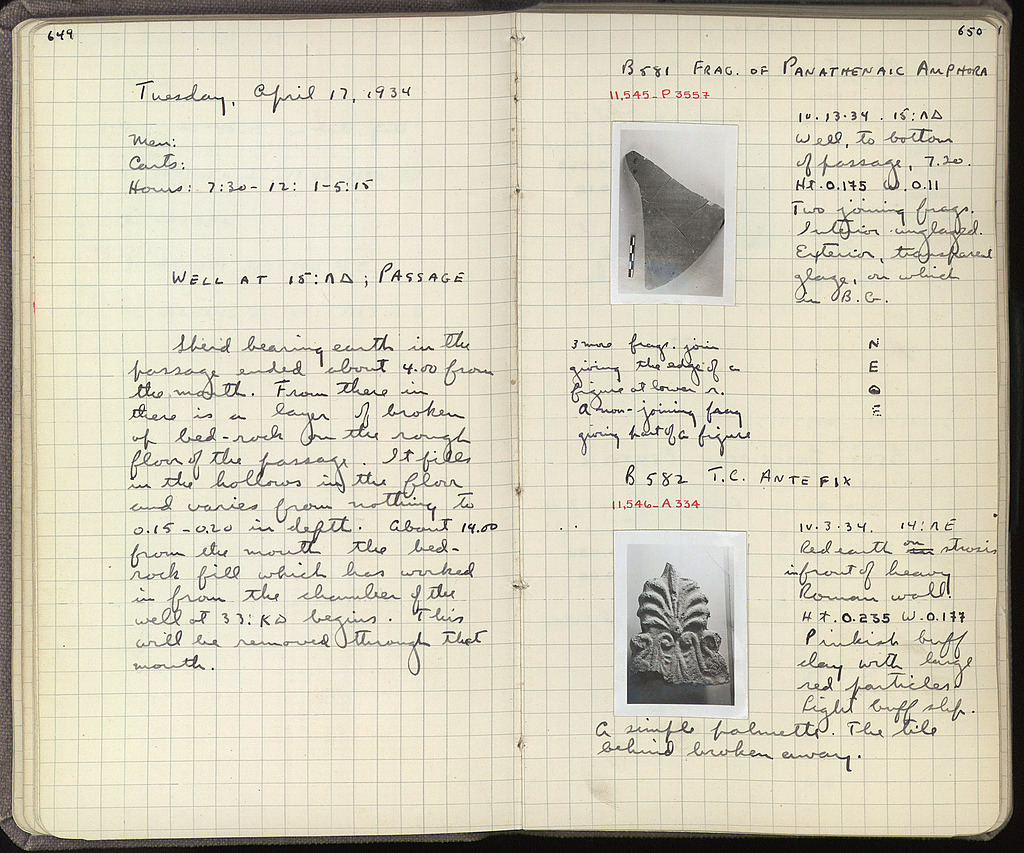 649
Tuesday, April 17, 1934
Men:
Carts:
Hours: 7:30 - 12: 1-5:15
WELL AT 15:ΛΔ; PASSAGE
Sherd bearing earth in the
passage ended about 4.00 from
the mouth. From there in
there is a layer of broken
up bed-rock on the rough
floor of the passage. It fills
in the hollows in the floor
and varies from nothing to
0.15-0.20 in depth. About 14.00
from the mouth the bed-
rock fill which has worked
in from the chamber of the
well at 33:ΚΔ begins. This
will be removed through that
mouth.
650
B581 FRAG. OF PANATHENAIC AMPHORA
11,545-P 3557
IV.13.34. 15:ΛΔ
Well, to bottom
of passage, 7.20.
Ht. 0.175 W. 0.11
Two joining frags.
Interior unglazed.
Exterior, transparent
glaze, on which
in B.G.
3 more frags. join
giving the edge of a
figure at lower r.
A non-joining frag
giving part of a figure
N
E
B 582 T.C. ANTEFIX
11,546-A 334
IV.3.34. 14:ΛΕ
Red earth on strosis
in front of heavy
Roman wall.
Ht. 0.235 W. 0.177
Pinkish buff
clay with large
red particles.
Light buff slip.
A simple palmette. The tile
behind broken away.